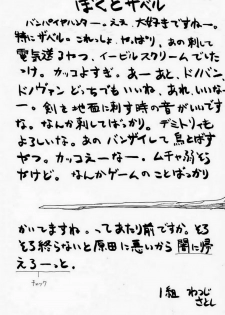 ぼくとザベル
バンパイヤハンター。ええ、大好きですねー。
特にザベル。これっしょ、やっぱり、あの刺して
電気送るやつ、イービルスクリームでした
っけ。カッコよすぎ。あーあと、ドノバン、
ドノヴァン どっちでもいいね、あれ、いいな
ー。剣を地面に刺す時の音がいいです
な。なんか刺してばっかり。デミトリィも
よろしいな。あの バンザイして鳥とばす
やつ。カッコえーなー。ムチャ弱そう
だけど。なんかゲームのことばっかり
かいてますね。って あたり前ですか。そろ
そろ終らないと原田に悪いから 闇に帰
えろーっと。
チェック
1組 わっじ
さとし